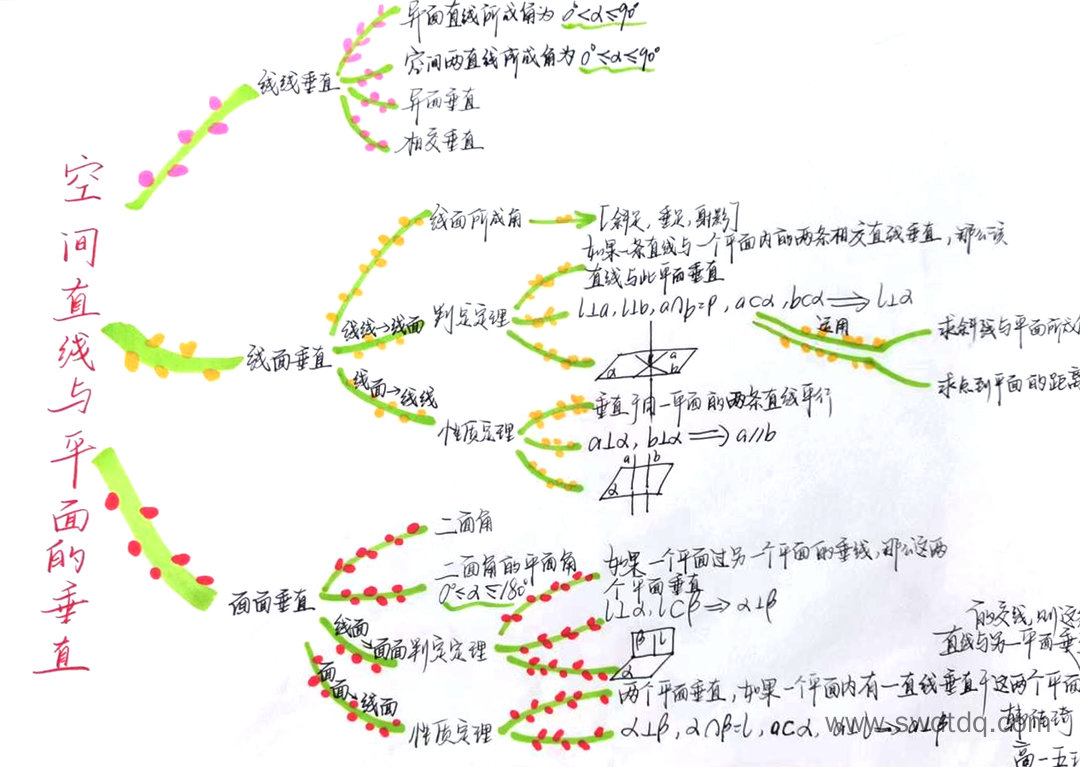 空间直线与平面的垂直
线线垂直
异面直线所成角为 0°<α≤90°
空间两直线所成角为 0°≤α≤90°
异面垂直
相交垂直
线面垂直
线面所成角
[斜足,垂足,射影]
线线→线面
判定定理
如果一条直线与一个平面内的两条相交直线垂直,那么该
直线与此平面垂直
l⊥a,l⊥b,a∩b=P,a⊂α,b⊂α⟹l⊥α
a
b
α
运用
求斜线与平面所成
求点到平面的距离
线面→线线
性质定理
垂直于同一平面的两条直线平行
a⊥α,b⊥α⟹a//b
a b
α
面面垂直
二面角
二面角的平面角
0°≤α≤180°
线面→面面
判定定理
如果一个平面过另一个平面的垂线,那么这两
个平面垂直
l⊥α,l⊂β⟹α⊥β
β l
α
面面→线面
性质定理
两个平面垂直,如果一个平面内有一直线垂直于这两个平面
的交线,则这
直线与另一平面垂
α⊥β,α∩β=l,a⊂α,a⊥l⟹a⊥β
www.swdtdq.com
高一五